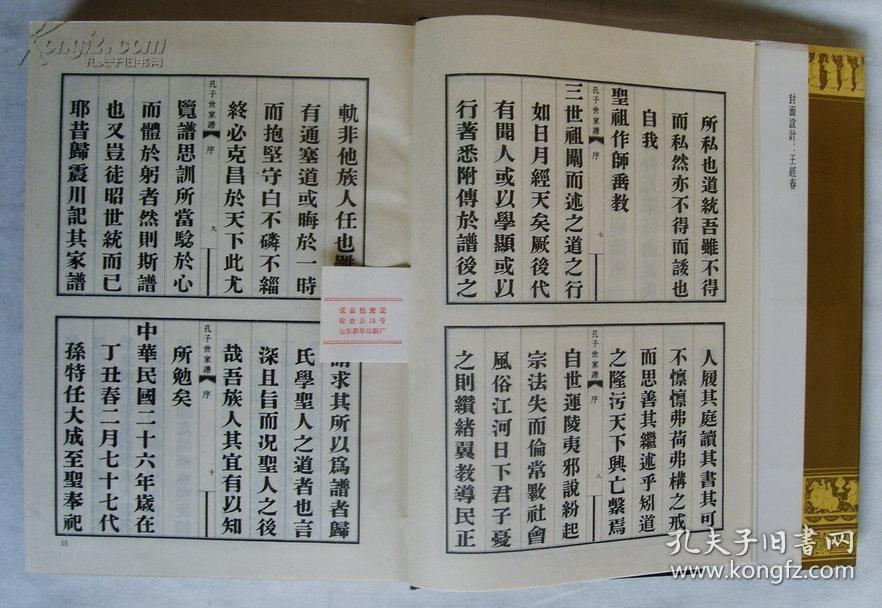 封面設計：王經春
所私也道統吾雖不得
而私然亦不得而諉也
自我
聖祖作師垂教
孔子世家譜 序 七
三世祖闡而述之道之行
如日月經天矣厥後代
有聞人或以學顯或以
行著悉附傳於譜後之
人履其庭讀其書其可
不懍懍弗荷弗構之戒
而思善其繼述乎矧道
之隆污天下興亡繫焉
孔子世家譜 序 八
自世運陵夷邪說紛起
宗法失而倫常斁社會
風俗江河日下君子憂
之則纘緒翼教導民正
軌非他族人任也雖
有通塞道或晦於一時
而抱堅守白不磷不緇
終必克昌於天下此尤
孔子世家譜 序 九
覽譜思訓所當騐於心
而體於躬者然則斯譜
也又豈徒昭世統而已
耶昔歸震川記其家譜
求其所以爲譜者歸
氏學聖人之道者也言
深且旨而况聖人之後
哉吾族人其宜有以知
孔子世家譜 序 十
所勉矣
中華民國二十六年歲在
丁丑春二月七十七代
孫特任大成至聖奉祀
15
成品检查证
检查员15号
山东新华印刷厂
Kongfz.com
孔夫子旧书网
孔夫子旧书网
www.kongfz.com